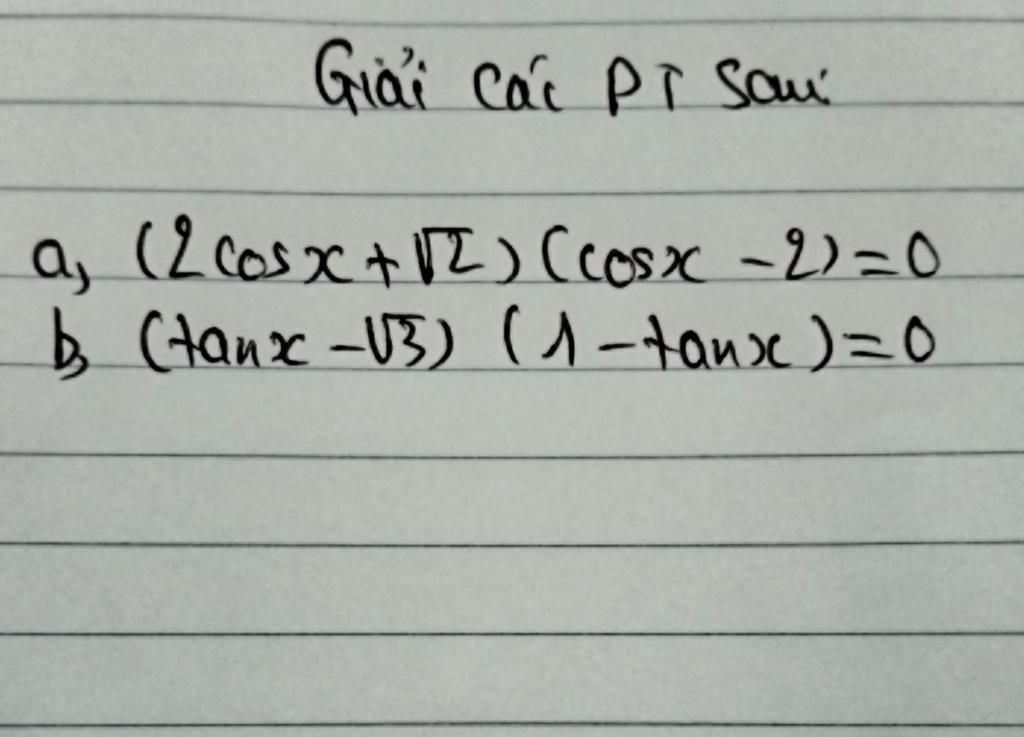 Giải các PT sau:
a, (2cosx+√2)(cosx-2)=0
b, (tanx-√3) (1-tanx)=0